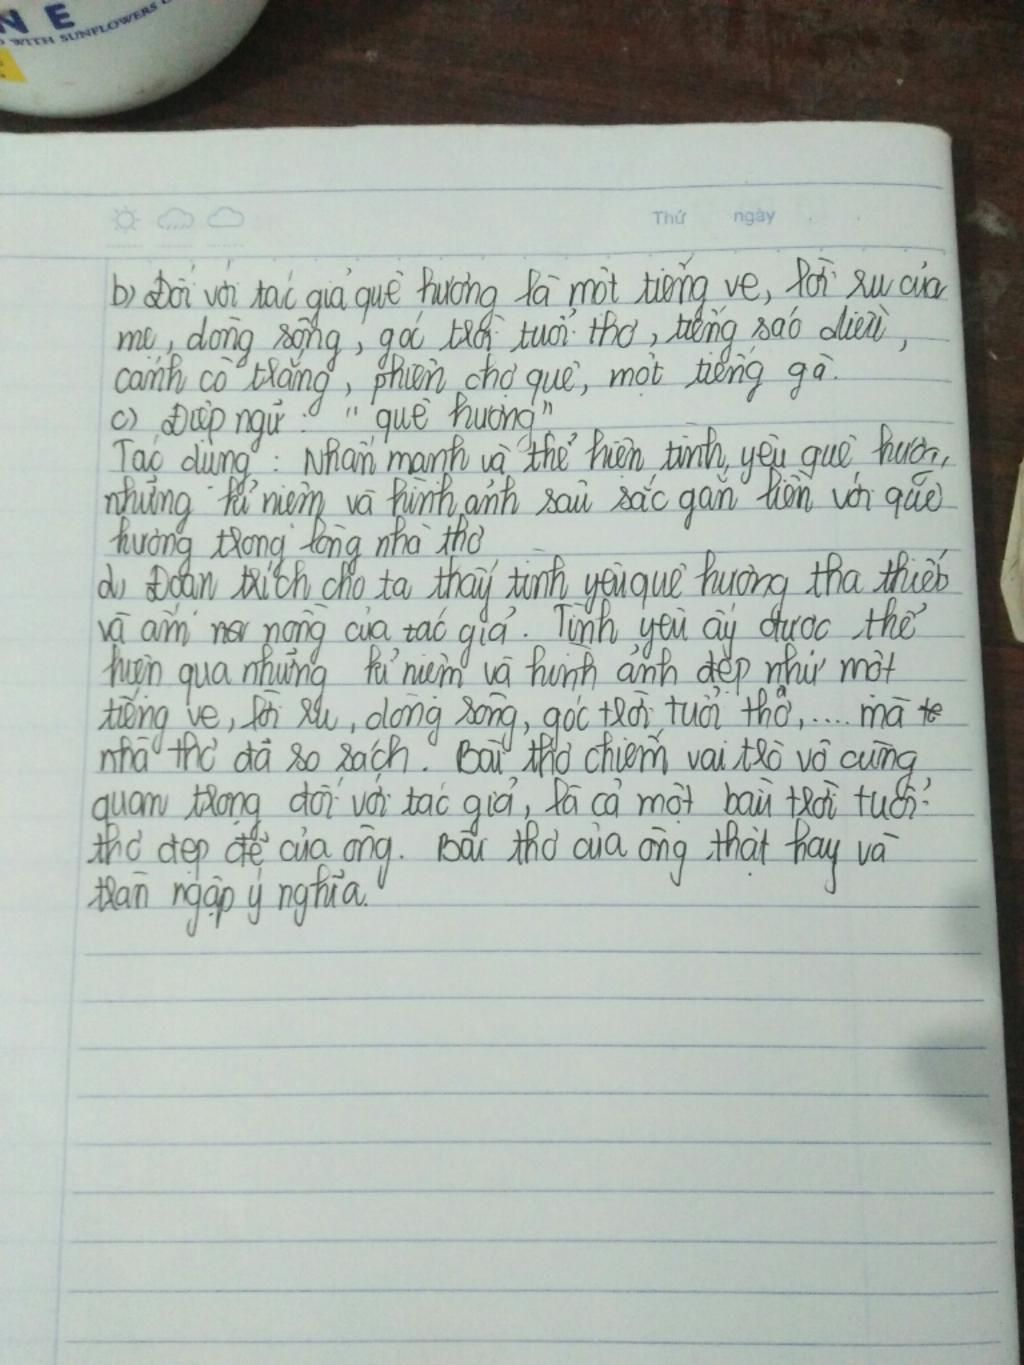 NE
WITH SUNFLOWERS
Thứ ngày
b) Đối với tác giả quê hương là một tiếng ve, lời ru của
mẹ, dòng sông, góc trời tuổi thơ, tiếng sáo diều,
cánh cò trắng, phiên chợ quê, một tiếng gà.
c) Điệp ngữ: "quê hương"
Tác dụng: Nhấn mạnh và thể hiện tình yêu quê hươn,
những kỉ niệm và hình ảnh sâu sắc gắn liền với quê
hương trong lòng nhà thơ
d) Đoạn trích cho ta thấy tình yêu quê hương tha thiết
và ấm nồng của tác giả. Tình yêu ấy được thể
hiện qua những kỉ niệm và hình ảnh đẹp như một
tiếng ve, lời ru, dòng sông, góc trời tuổi thơ,.... mà
nhà thơ đã so sách. Bài thơ chiếm vai trò vô cùng
quan trọng đối với tác giả, là cả một bầu trời tuổi
thơ đẹp đẽ của ông. Bài thơ của ông thật hay và
tràn ngập ý nghĩa.